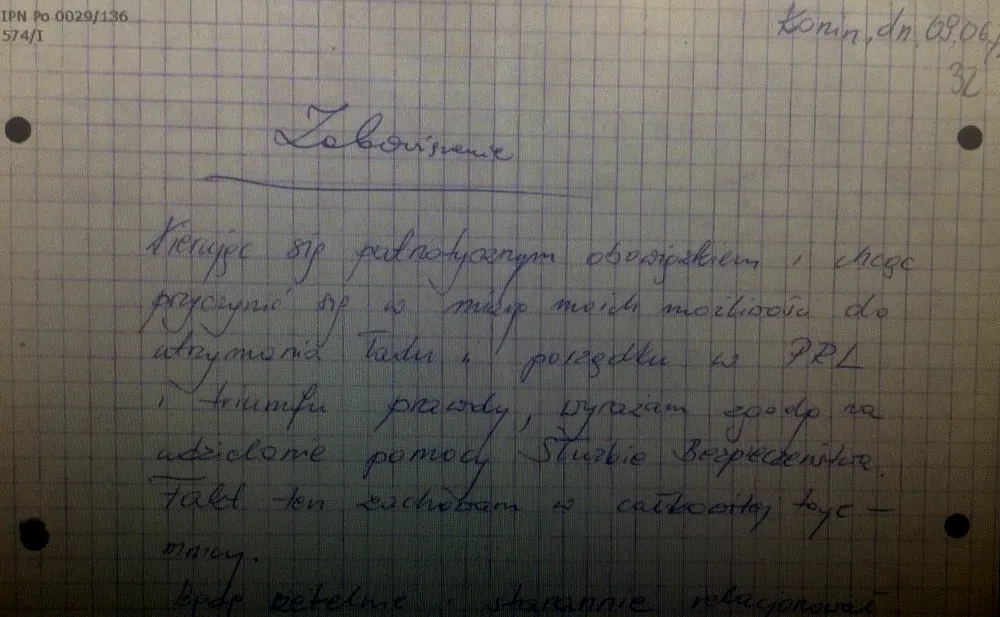 IPN Po 0029/136
574/I
Konin, dn. 09.06
32
Zobowiązanie
Kierując się patriotycznym obowiązkiem i chcąc
przyczynić się w miarę moich możliwości do
utrzymania ładu i porządku w PRL
i triumfu prawdy, wyrażam zgodę na
udzielanie pomocy Służbie Bezpieczeństwa.
Fakt ten zachowam w całkowitej taje-
mnicy.
Będę rzetelnie i starannie relacjonował